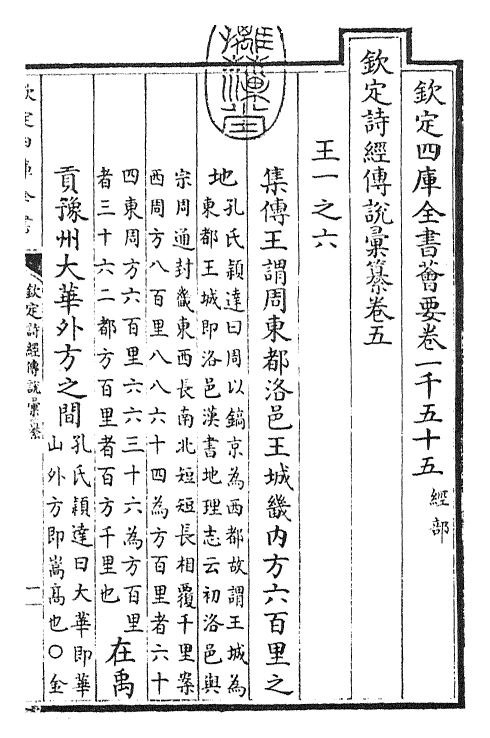 欽定四庫全書薈要卷一千五十五 經部
欽定詩經傳說彙纂卷五
王一之六
集傳王謂周東都洛邑王城畿內方六百里之
地孔氏穎達曰周以鎬京為西都故謂王城為
東都王城即洛邑漢書地理志云初洛邑與
宗周通封畿東西長南北短短長相覆千里案
西周方八百里八八六十四為方百里者六十
四東周方六百里六六三十六為方百里
者三十六二都方百里者百方千里也
在禹
貢豫州大華外方之間孔氏穎達曰大華即華
山外方即嵩高也○金
欽定四庫全書
欽定詩經傳說彙纂
一